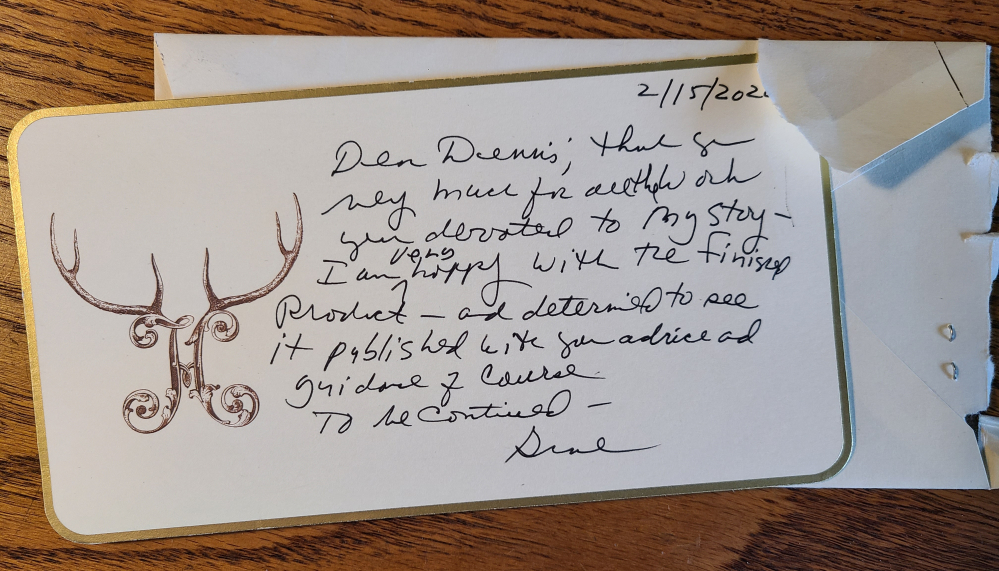 2/15/202
Dear Dennis, thank you
very much for all the work
you devoted to my story –
I am very happy with the finished
Product – and determined to see
it published with your advice and
guidance of course.
To be continued –